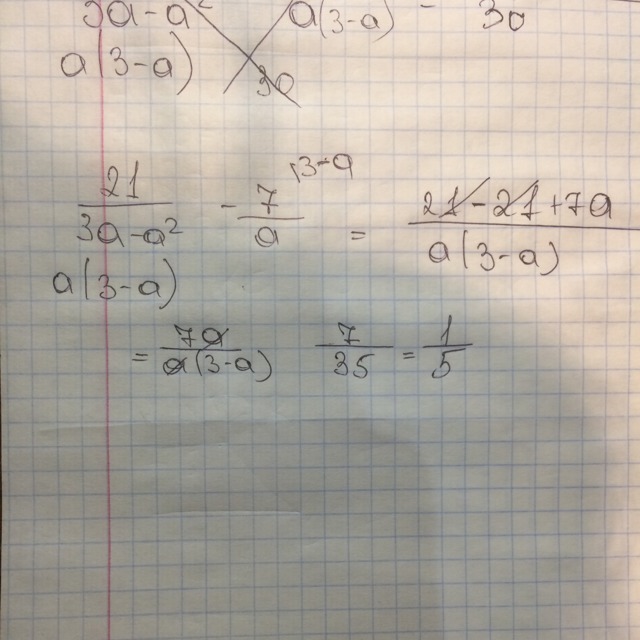 3a-a² a(3-a) - 30
a(3-a) 30
21/(3a-a²) - 7/a \3-a = (21-21+7a)/(a(3-a))
a(3-a)
= 7a/(a(3-a)) 7/35 = 1/5